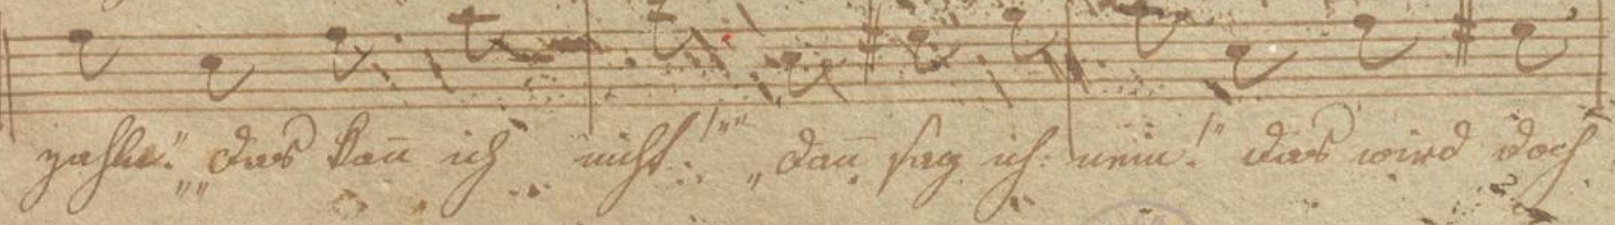 zahle." „„das kan̄ ich nicht!"" „dan̄ sag ich: nein!" das wird doch